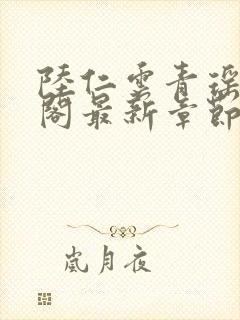 陸仁雲青瑶
閣最新章節
嵐月夜